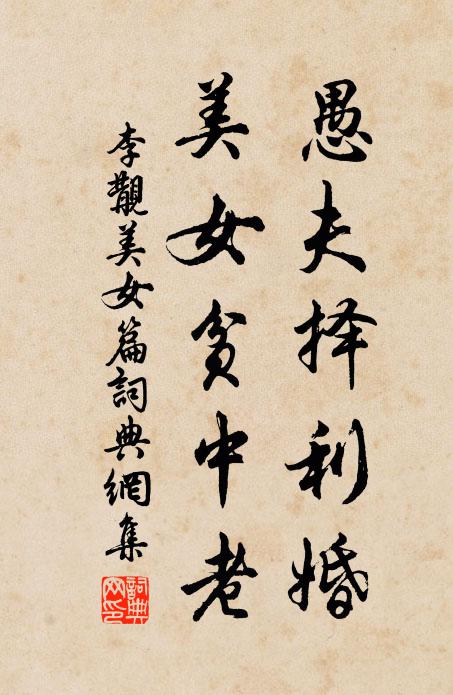 愚夫择利婚
美女贫中老
李觏美女篇詞典網集
詞典网印